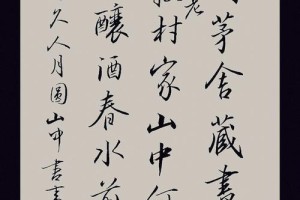 茅舍藏書
老
村家山中何
釀酒春水煎
久人月圓山中書事